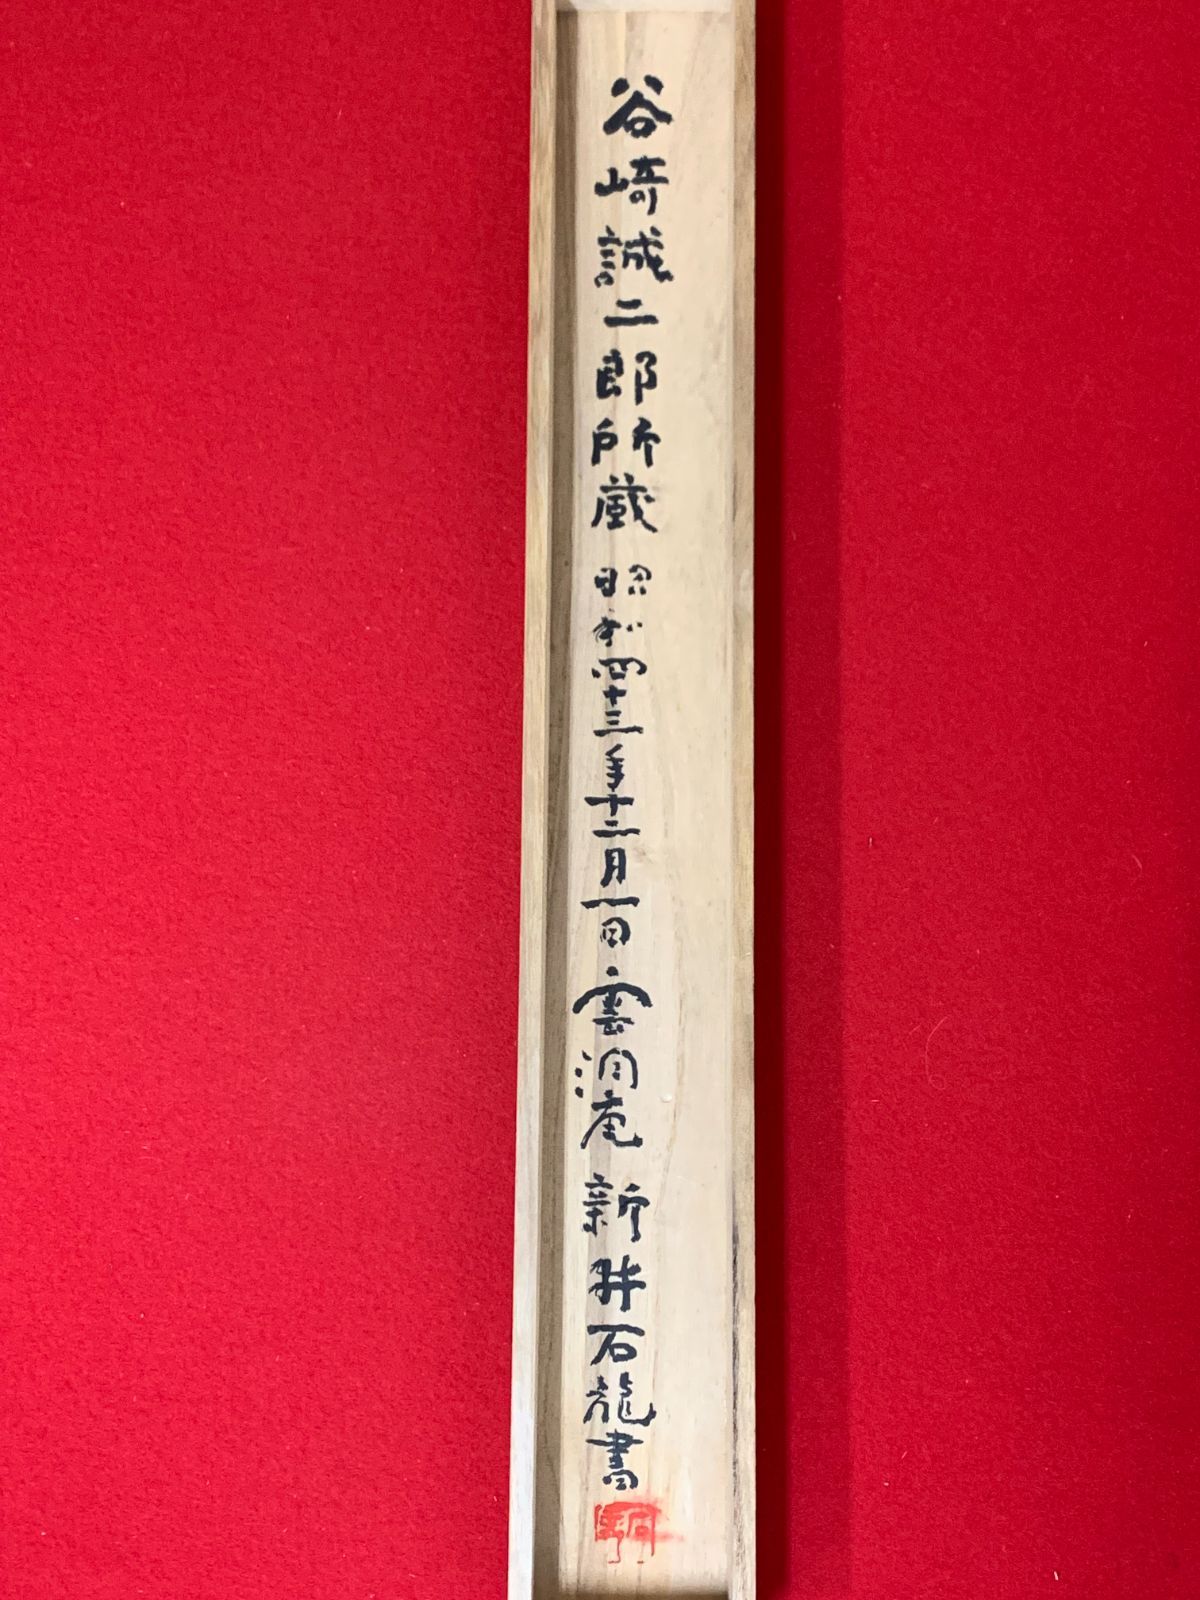 谷崎誠二郎所蔵 昭和四十三年十二月一日 雲洞庵 新井石龍書